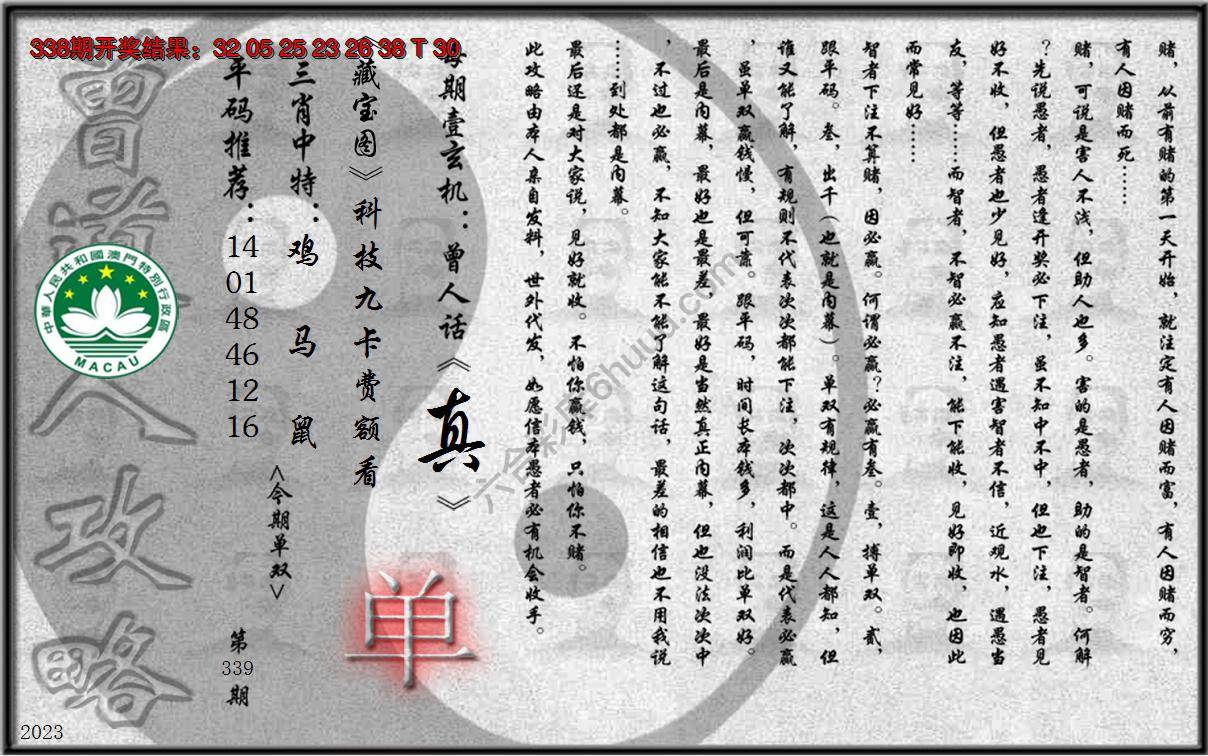 338期开奖结果：32 05 25 23 26 38 T 30
赌，从前有赌的第一天开始，就注定有人因赌而富，有人因赌而穷，
有人因赌而死……
赌，可说是害人不浅，但助人也多。害的是愚者，助的是智者。何解
？先说愚者，愚者逢开奖必下注，虽不知中不中，但也下注，愚者见
好不收，但愚者也少见好，应知愚者遇害智者不信，近观水，遇愚当
友，等等……而智者，不智必赢不注，能下能收，见好即收，也因此
而常见好……
智者下注不算赌，因必赢。何谓必赢？必赢有叁。壹，搏单双。贰，
跟平码。叁，出千（也就是内幕）。单双有规律，这是人人都知，但
谁又能了解，有规则不代表次次都能下注，次次都中。而是代表必赢
，虽单双赢钱慢，但可靠。跟平码，时间长本钱多，利润比单双好。
最后是内幕，最好也是最差，最好是当然真正内幕，但也没法次次中
，不过也必赢，不知大家能不能了解这句话，最差的相信也不用我说
……到处都是内幕。
最后还是对大家说，见好就收。不怕你赢钱，只怕你不赌。
此攻略由本人亲自发料，世外代发，如愿信本愚者必有机会收手。
每期壹玄机：曾人话《真》
《藏宝图》科技九卡费额看
三肖中特：鸡 马 鼠
平码推荐：14 01 48 46 12 16
<今期单双>
单
第339期
曾道人攻略
中華人民共和國澳門特別行政區
MACAU
六合彩库6huuu.com
2023